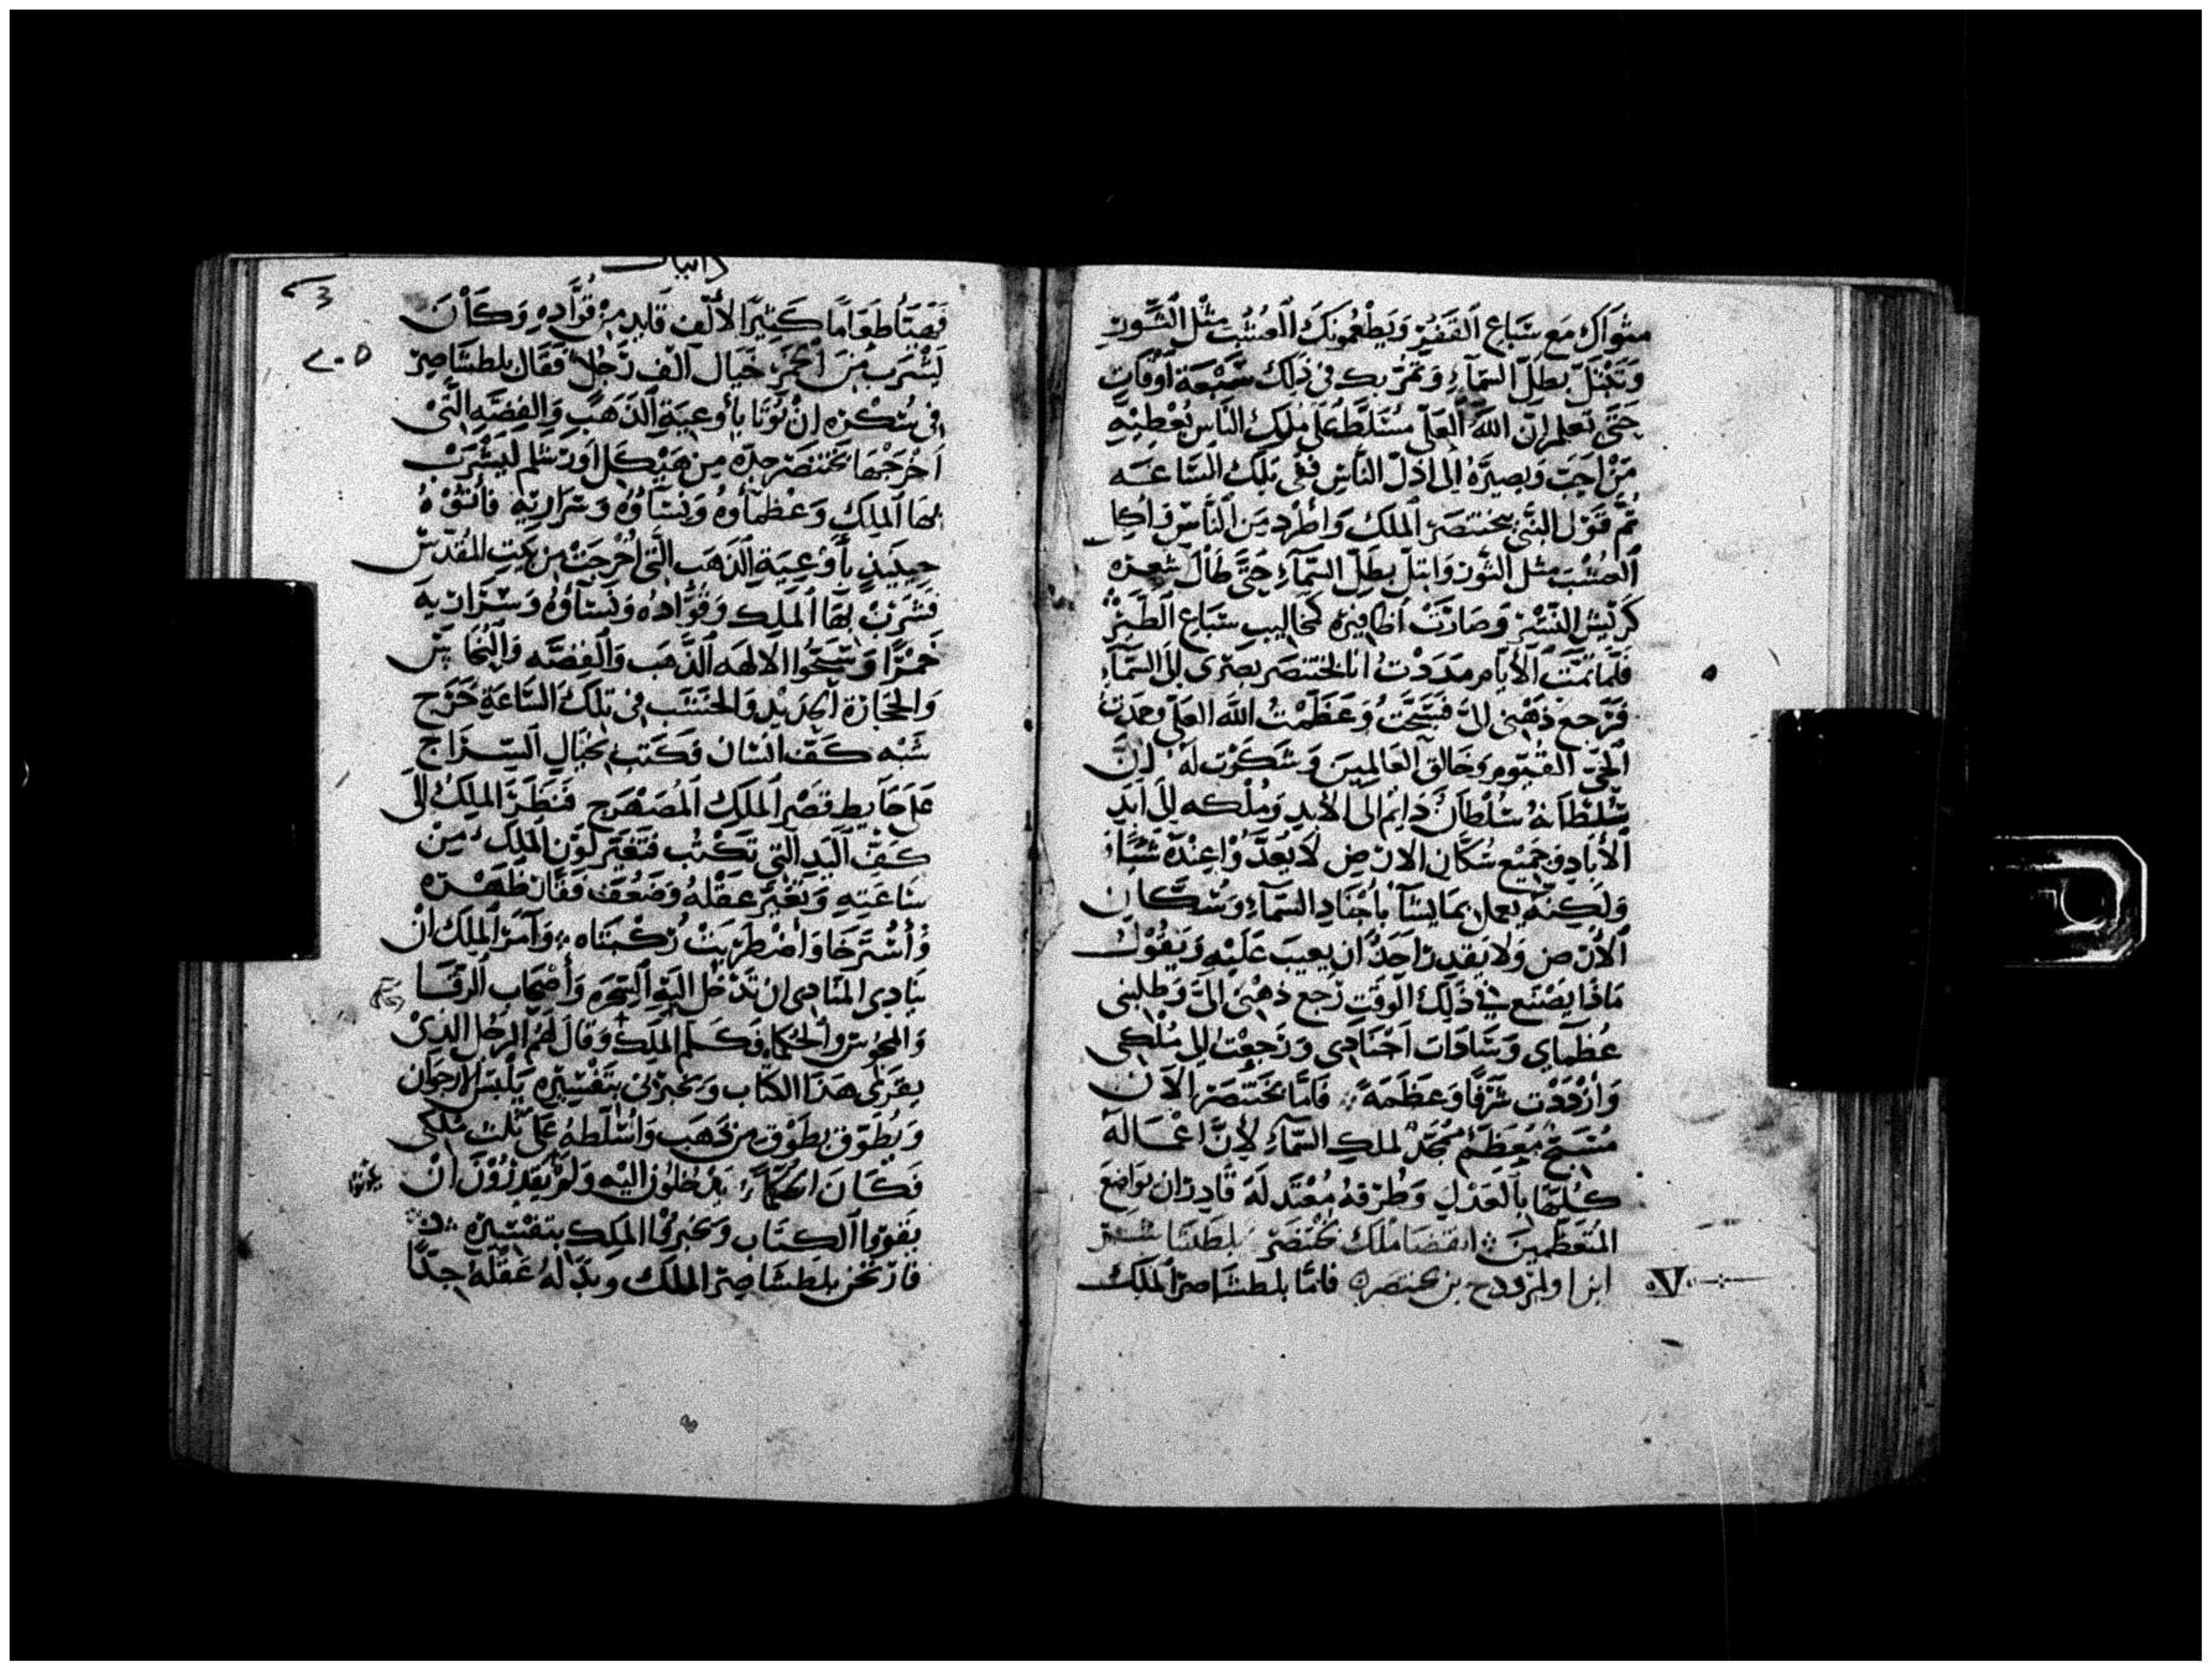 مثواك مع سَباع القَفرُ وَيَطْعُمونَكَ العُشبُ مِثْل الثَّور
وَتَبْتَلّ بطِلّ السّمَآءِ وَتَمُرّ بِك فى ذَلِك سَبْعَة أوقَات
حَتَّى تعلم اِنّ اللهَ العَلّى مُسَلَّط عَلَى مُلك النَاس يُعْطِيْهِ
مَنْ اَحَبّ وَيصيرّهُ الى اذلّ النَّاسِ ففى تلكَ السّاعَه
تُمّ قَوْل النّبى بختنصَر المَلكَ وَاُطْرِد مِن النَّاسْ وَاكل
العشْب مثل الثّور وَابتلّ بطِلّ السّمآءِ حَتَّى طَالَ شعره
كَريش النسْر وَصَارَتْ اظَافيرَه كمخاليب سَبَاع الطّيْرْ
فلمّا تمّت الأيّام مدَدَدْتُ انا بختنصَر بصَرى الىَ السّمآءِ
فَرَجع ذهْنى لىّ فَسَبَّحَتُ وَعَظّمْتُ الله العَلّى وحمدت
الحَىّ القيّوم وَخَالق العَالمِينَ وَشَكَرْت لَهُ لاِنّ
سُلطَانهُ سُلْطَان دَايْم الى الأبدِ وَمُلْكه الىَ اَبَدِ
الأبَادِ وَجَمِيْع سُكّان الارْضِ لا يُعدّوا عِنْدَه شَيْاً
وَلَكِنّهُ يعمل بمَا يشَآ بأجنَادِ السّمآءِ وَسُكّان
الأرْض وَلا يَقدِر اَحَدْ ان يعِيبَ عَلَيْهِ وَيَقُوْل
مَاذَا يَصْنَع فى ذَلِكَ الوَقتِ رَجع ذهْنى الىّ وَطلبنى
عُظمآى وَسَادَات اَجنَادِى وَرَجعْت الى مُلكى
وَازْدَدْت شرفاً وَعظَمَة فامّا بختنصَر الآن
مُسَبِّحْ مُعظّم مُمجّدْ لملك السّمآءِ لاِنَّ اعْمَالَهُ
كُلّهَا بالعَدْلِ وَطُرْقهُ مُعْتَدلَه قَادِر ان يوَاضِعَ
المُتعَظّمِينَ انقضَا مُلك بختنصَر بلطَشَا
ابن اولمرودح بن بختنصر فامّا بلطشَاصرَ الملك
دانيال
فَصَنَعَ طعَامًا كَثيرًا لألف قايد مِنْ قُوَّادِهِ وَكَانَ
يَشْرَب مِنَ الخَمرَ حَيَال الف رَجُل فَقَال بلطشَاصِر
فى سُكْره انْ يُوتَا بأوعيَة الذَهَب وَالفِضّه الّتى
اخرَجهَا بختنصَر جدّه من هَيْكل اورَشَلم ليَشْرَبْ
بهَا الملك وَعُظمآوهُ وَنسَاؤهُ وَسَرَاريّهِ فأتَوْهُ
حِينَيذٍ بأوْعِيَة الذَهَب الّتى اُخْرجَتْ من بَيت المُقدّس
فشَربْ بهَا الملك وَقُوّادُه وَنسَآؤهُ وَسَرَاريّهَ
خَمْرًا وَسَبّحُوا الالهَه الذّهَب وَالفِضَّه وَالنّحَاسْ
وَالحجَارَة الحَدِيْدِ وَالخشَب فى تلكَ السّاعَةِ خَرَجَ
شبْه كَفّ انسَان فكَتب بحَيَالِ السّرَاج
عَلَى حَايط قصْر المَلك المُصَهْرَج فَنَظَرَ الملك الَى
كفّ اليَد التى تكْتُب فتغَيّر لوْن الملك مِنْ
سَاعَتِهِ وَتغيّر عقْلهُ وَضعُف فقَار ظَهْرَه
وَأسْتَرخَا وَاضْطَرَبَتْ رُكبتَاه وَامَر الملك انْ
ينَادى المنَادى ان تدْخُل اليْهِ السّحَره وَأصْحَاب الرقَا
وَالمجُوسْ وَالحُكما فكَلّم الملك وَقالَ لهمُ الرجُل الذى
يقرَى هَذا الكتَاب وَيخبرنى بتفْسيرَه يَلْبَس الارجوَان
وَيُطَوّق بطَوْق من ذهَب وَاسَلّطهُ عَلَى ثلث مُلكى
فكَانَ الحكمآءُ يَدْخلُون اليْه وَلمْ يَقدِرُوْنَ انْ
يَقرَوا الكتَاب وَيخبرُوا الملك بتفْسِيرَه
فارْتجّ بلطَشَاصِر الملك وَبدّلهُ عَقلَهُ جدًّا